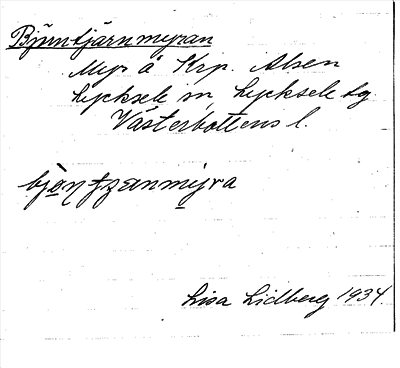 Björntjärnmyran
Myr å Krp. Alsen
Lycksele sn, Lycksele tg
Västerbottens l.
Lisa Lidberg 1934.